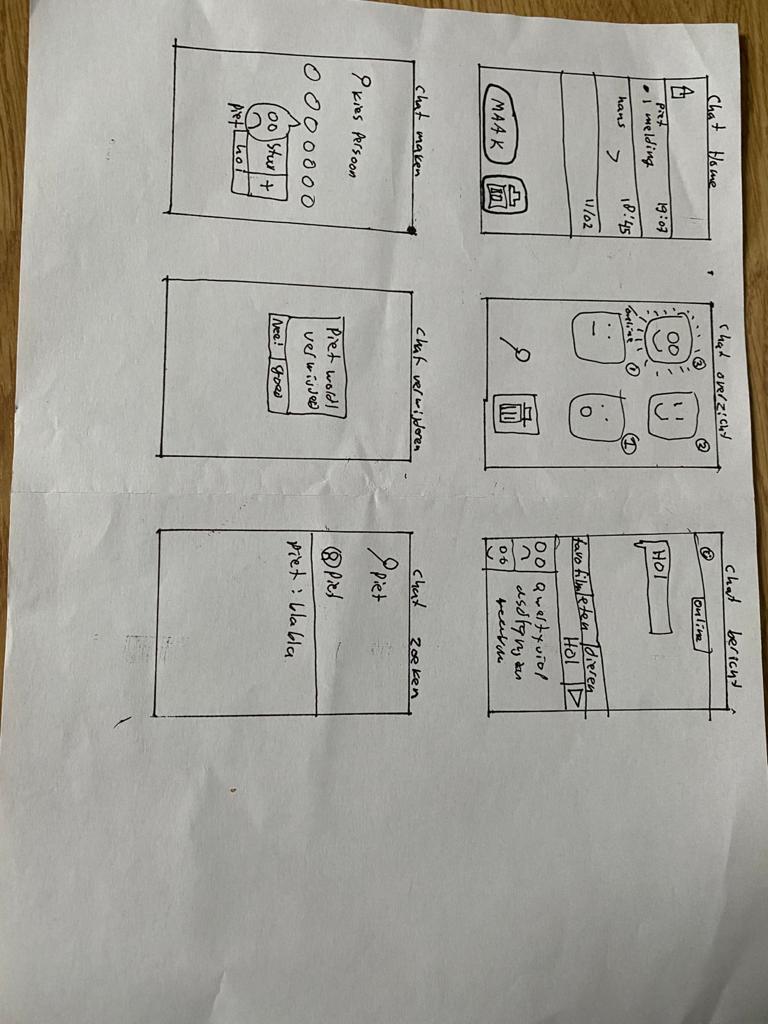 Chat Home
Piet
1 melding 19:07
hans > 18:45
11/02
MAAK
Chat overzicht
3
3
online
1
1
Chat bericht
online
HOI
favo filmleten dieren
HOI
Qwertyuiop
Chat maken
Kies Persoon
Stuur +
Piet hoi
Chat verwijderen
Piet wordt
verwijderd
nee! goed
Chat zoeken
Piet
Piet
Piet : blabla